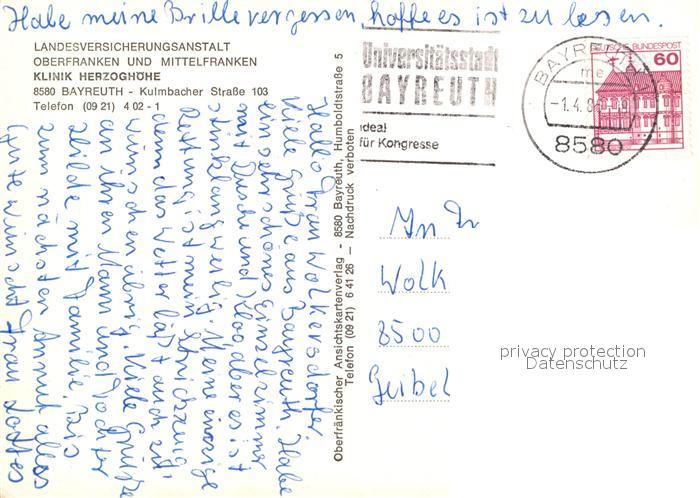 Habe meine Brille vergessen, hoffe es ist zu lesen.
LANDESVERSICHERUNGSANSTALT
OBERFRANKEN UND MITTELFRANKEN
KLINIK HERZOGHÖHE
8580 BAYREUTH - Kulmbacher Straße 103
Telefon (09 21) 4 02 - 1
Hallo Frau Wolkersdorfer
Viele Grüße aus Bayreuth. Habe
ein sehr schönes Einzelzimmer
mit Dusche und Kloo aber es ist
stinklangweilig. Meine einzige
Rettung ist mein Strickzeug
denn das Wetter läßt auch zu
wünschen übrig. Viele Grüße
an ihren Mann und Tochter
Hilde mit Familie. Bis
zum nächsten Anruf alles
Gute wünscht Frau
Oberfränkischer Ansichtskartenverlag - 8580 Bayreuth, Humboldtstraße 5
Telefon (09 21) 6 41 26 — Nachdruck verboten
Universitätsstadt
BAYREUTH
ideal
für Kongresse
BAYREUTH
me
-1.4.8
8580
DEUTSCHE BUNDESPOST
60
Wolk
8500
Geibel
privacy protection
Datenschutz